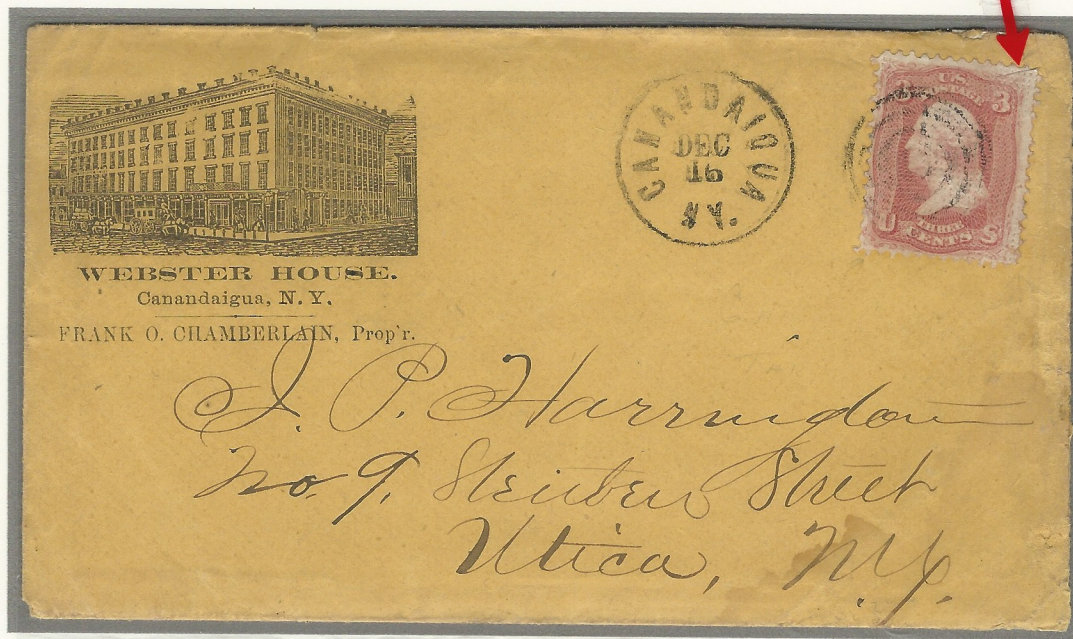 WEBSTER HOUSE.
Canandaigua, N. Y.
FRANK O. CHAMBERLAIN, Prop'r.
CANANDAIGUA
DEC
16
N.Y.
3 U.S. 3
POSTAGE
U THREE S
CENTS
J. P. Harrington
No. 9. Steuben Street
Utica, N.Y.